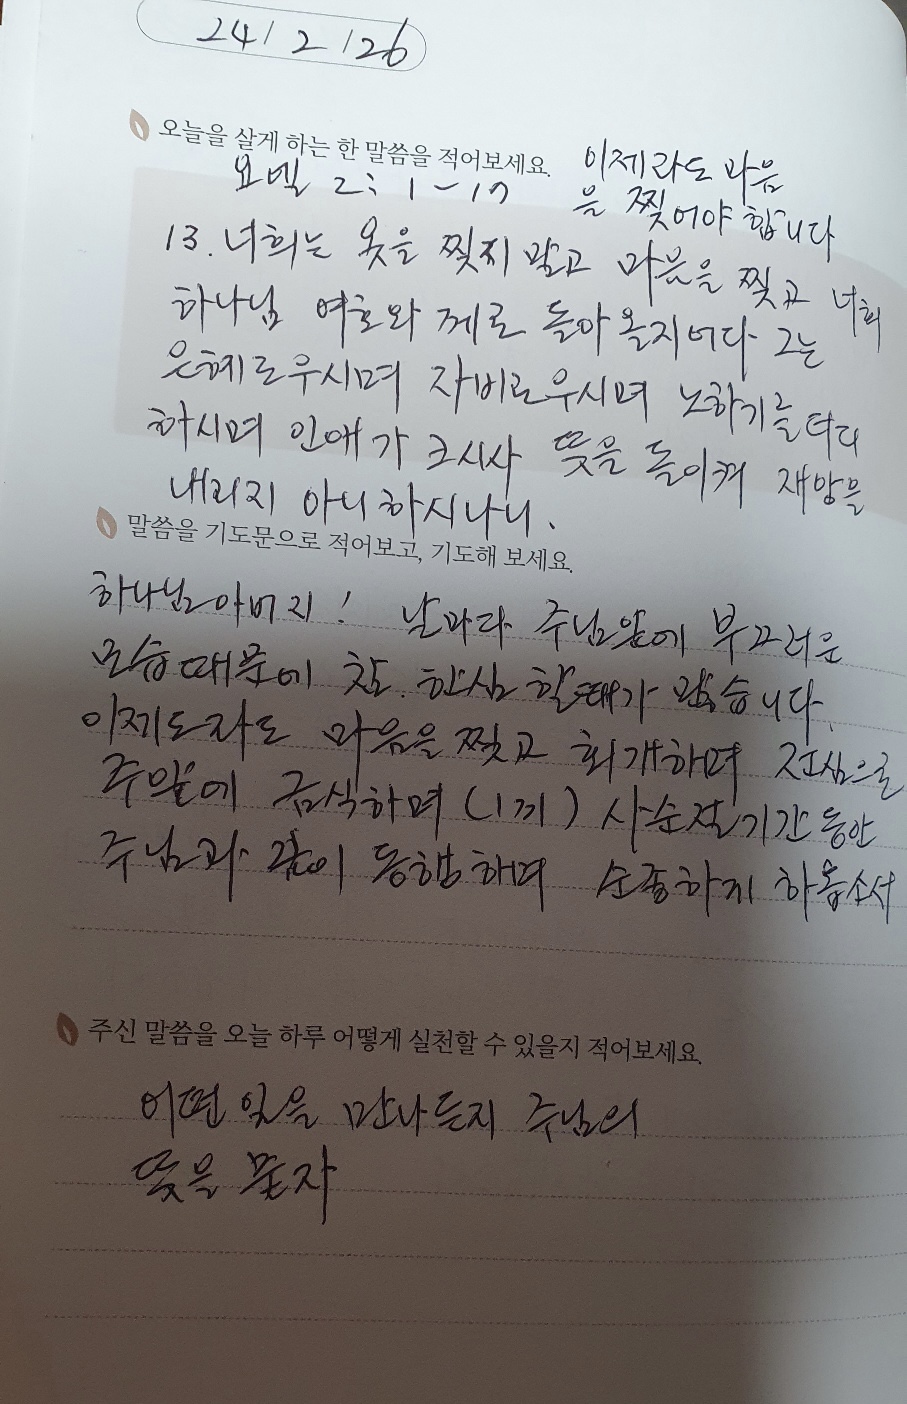 24/2/26
오늘을 살게 하는 한 말씀을 적어보세요.
요엘 2:1-17
이제라도 마음
을 찢어야 합니다
13. 너희는 옷을 찢지 말고 마음을 찢고 너희
하나님 여호와께로 돌아올지어다 그는
은혜로우시며 자비로우시며 노하기를 더디
하시며 인애가 크시사 뜻을 돌이켜 재앙을
내리지 아니하시나니.
말씀을 기도문으로 적어보고, 기도해 보세요.
하나님아버지! 날마다 주님앞에 부끄러운
모습때문에 참. 한심할때가 많습니다.
이제도라도 마음을 찢고 회개하며 전심으로
주앞에 금식하며 (1끼) 사순절기간동안
주님과 같이 동행하며 순종하게 하옵소서
주신 말씀을 오늘 하루 어떻게 실천할 수 있을지 적어보세요.
어떤 일을 만나든지 주님의
뜻을 묻자